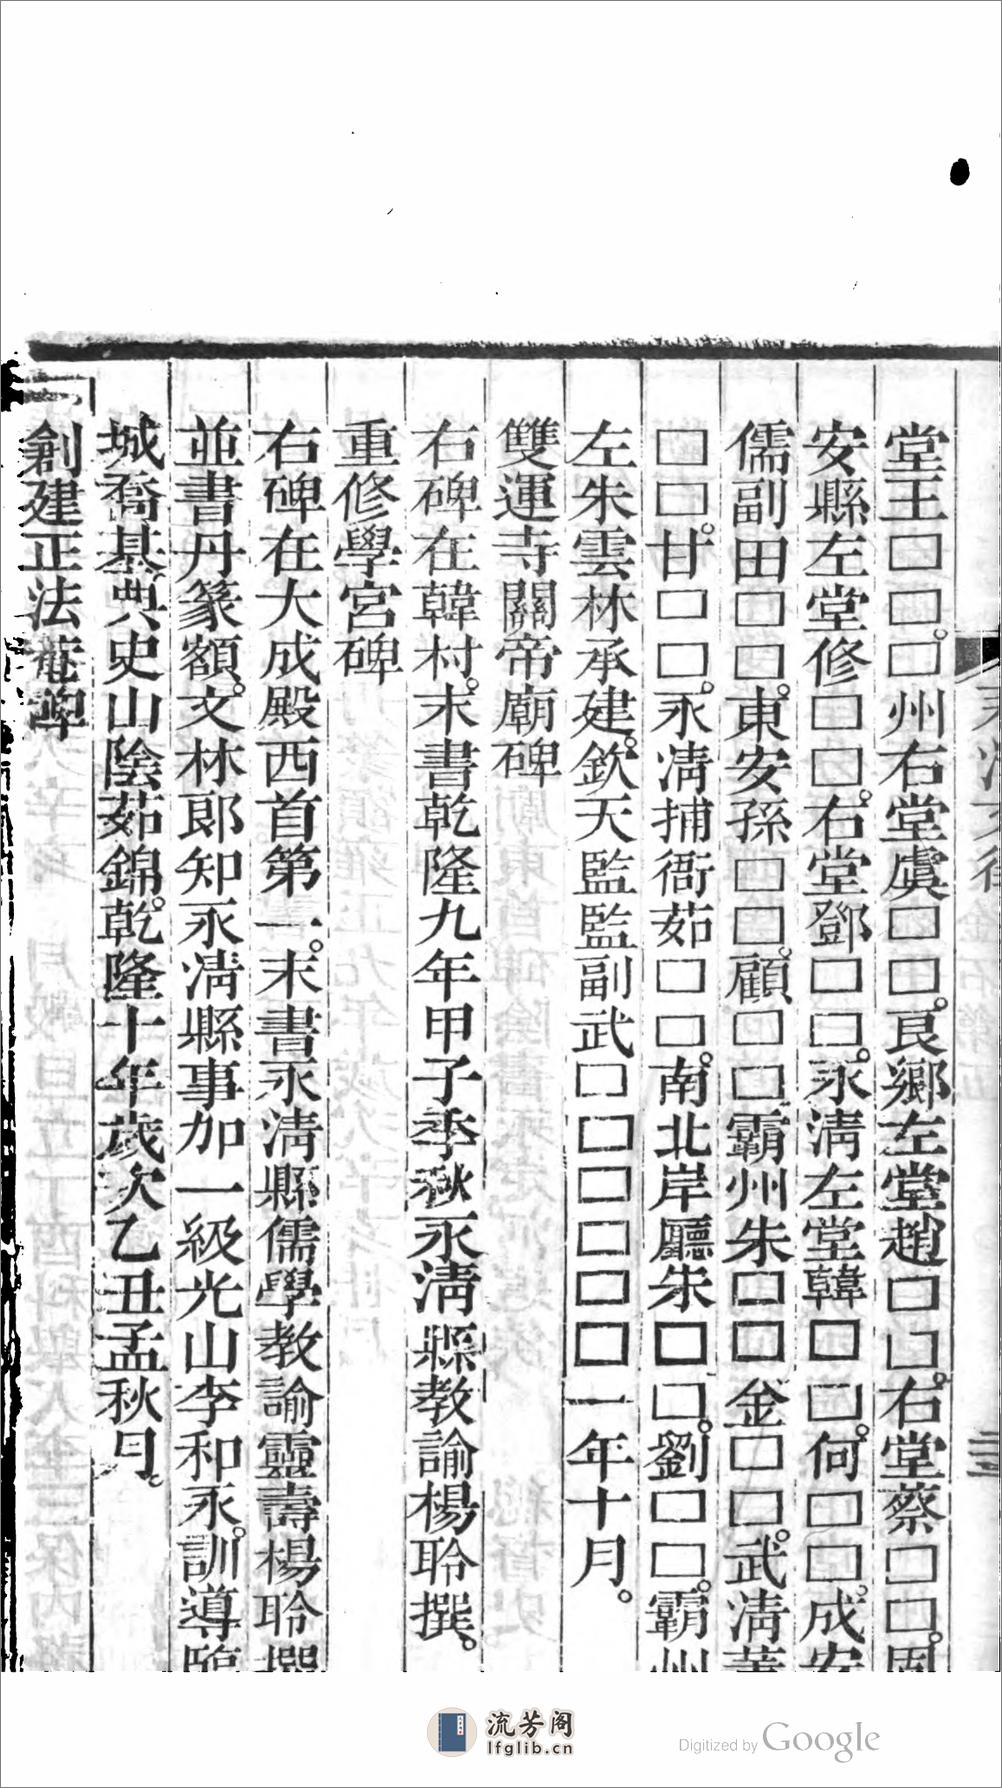 堂王□□。□州右堂虞□□。良鄉左堂趙□□。右堂蔡□□。固
安縣左堂修□□。右堂鄧□□。永清左堂韓□□。何□□。成安
儒副田□□。東安孫□□。顧□□霸州朱□□金□□。武清董
□□。甘□□。永清捕衙茹□□。南北岸廳朱□□。劉□□。霸州
左朱雲林承建。欽天監監副武□□□□□□一年十月。
雙運寺關帝廟碑
右碑在韓村。末書乾隆九年甲子季秋永清縣教諭楊聆撰。
重修學宮碑
右碑在大成殿西首第一。末書永清縣儒學教諭靈壽楊聆撰
並書丹篆額。文林郎知永清縣事加一級光山李和永。訓導臨
城喬基。典史山陰茹錦。乾隆十年歲次乙丑孟秋月。
創建正法菴碑
流芳阁
lfglib.cn
Digitized by Google